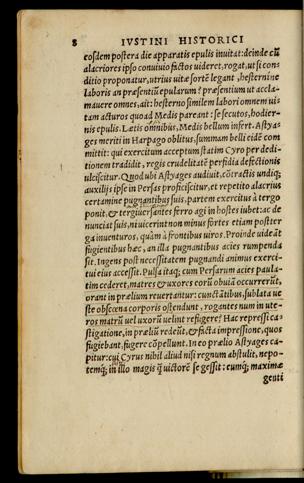 8 IVSTINI HISTORICI
eosdem postera die apparatis epulis inuitat: deinde cũ
alacriores ipso conuiuio factos uideret, rogat, ut si con
ditio proponatur, utrius uitæ sortẽ legant, hesterni ne
laboris an præsentiũ epularum? præsentium ut accla-
mauere omnes, ait: hesterno similem labori omnem ui-
tam acturos quoad Medis pareant: se secutos, hodier-
nis epulis. Lætis omnibus, Medis bellum infert. Astya-
ges meriti in Harpago oblitus, summam belli eidẽ com
mittit: qui exercitum acceptum statim Cyro per dedi-
tionem tradidit, regis crudelitatẽ perfidia defectionis
ulciscitur. Quod ubi Astyages audiuit, cõtractis undiq;
auxilijs ipse in Persas proficiscitur, et repetito alacrius
certamine pugnantibus suis, partem exercitus à tergo
ponit, & tergiuersantes ferro agi in hostes iubet: ac de
nunciat suis, ni uicerint non minus fortes etiam post ter
ga inuenturos, quàm à frontibus uiros. Proinde uideãt
fugientibus hæc, an illa pugnantibus acies rumpenda
sit. Ingens post necessitatem pugnandi animus exerci-
tui eius accessit. Pulsa itaq; cum Persarum acies paula-
tim cederet, matres & uxores eorũ obuiã occurrerũt,
orant in prælium reuertantur: cunctãtibus, sublata ue
ste obscœna corporis ostendunt, rogantes num in ute-
ros matrũ uel uxorũ uelint refugere? Hac repressi ca-
stigatione, in præliũ redeũt, & facta impressione, quos
fugiebant, fugere cõpellunt. In eo prælio Astyages ca-
pitur: cui Cyrus nihil aliud nisi regnum abstulit, nepo-
temq; in illo magis q̃ uictorẽ se gessit: eumq; maximæ
genti